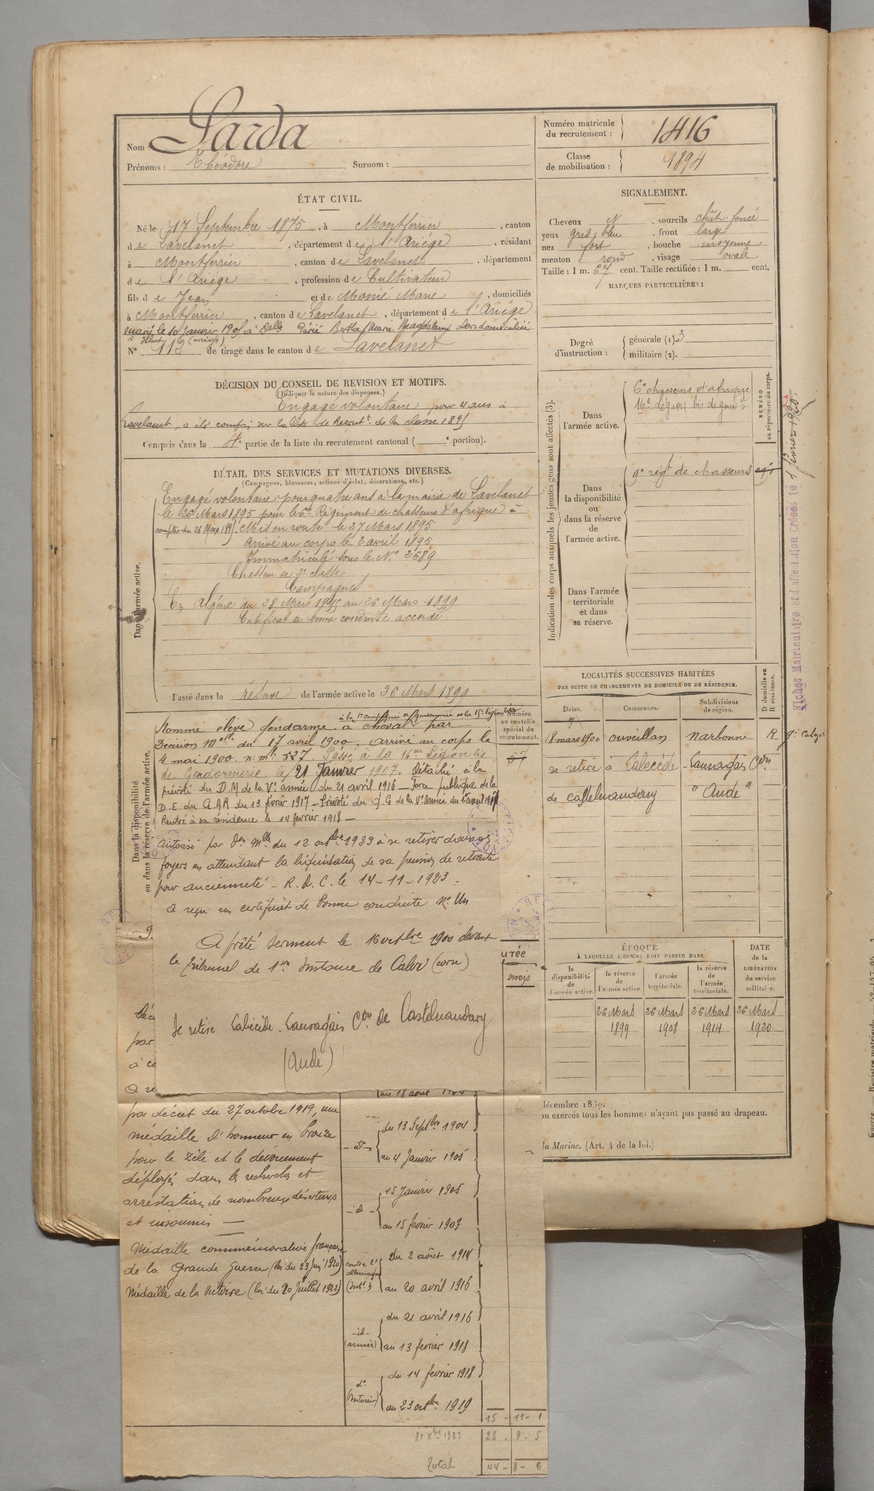 Nom Sarda
Prénoms : Théodore Surnom :
Numéro matricule du recrutement : 1416
Classe de mobilisation : 1894
ÉTAT CIVIL.
Né le 17 Septembre 1875, à Montferrier, canton
de Lavelanet, département de l'Ariége, résidant
à Montferrier, canton de Lavelanet, département
de l'Ariége, profession de Cultivateur
fils de Jean et de Monié Marie, domiciliés
à Montferrier, canton de Lavelanet, département de l'Ariége
N° 115 de tirage dans le canton de Lavelanet
SIGNALEMENT.
Cheveux N, sourcils chât. foncé
yeux gris-bleu, front large
nez fort, bouche moyenne
menton rond, visage ovale
Taille : 1 m. 67 cent. Taille rectifiée : 1 m. cent.
MARQUES PARTICULIÈRES :
Degré d'instruction : générale (1) 3
militaire (2).
DÉCISION DU CONSEIL DE REVISION ET MOTIFS.
(Indiquer la nature des dispenses.)
Engagé volontaire pour 4 ans à
Lavelanet, a été compris sur la liste de Recrut.t de la classe 1895
Compris dans la 4e partie de la liste du recrutement cantonal ( portion).
DÉTAIL DES SERVICES ET MUTATIONS DIVERSES.
(Campagnes, blessures, actions d'éclat, décorations, etc.)
Dans l'armée active.
Engagé volontaire pour quatre ans à la mairie de Lavelanet
le 26 Mars 1895 pour le 6e Régiment de chasseurs d'afrique à
compter du 26 Mars 1895. Mis en route le 27 Mars 1895
Arrivé au corps le 2 avril 1895
Immatriculé sous le N° 2589
Chasseur de 2e classe
Campagnes
En Algérie du 28 Mars 1895 au 25 Mars 1899
Certificat de bonne conduite accordé
Passé dans la réserve de l'armée active le 26 Mars 1899
Indication des corps auxquels les jeunes gens sont affectés (3).
NUMÉROS
Dans l'armée active.
6e chasseurs d'afrique
Dans la disponibilité ou dans la réserve de l'armée active.
9e régt de chasseurs
Dans l'armée territoriale et dans sa réserve.
LOCALITÉS SUCCESSIVES HABITÉES
PAR SUITE DE CHANGEMENTS DE DOMICILE OU DE RÉSIDENCE.
Dates. Communes. Subdivisions de région. D domicile ou R résidence.
18 mars 1900 ouveillan narbonne R
se retire à Labécède-Lauragais Con
de castelnaudary "Aude"
Dans la disponibilité ou dans la réserve de l'armée active.
Nommé élève gendarme à cheval par
Décision Mlle du 17 avril 1900. Arrivé au corps le
4 mai 1900 n° mle 527. Passé à la 16me Légion bis
de Gendarmerie le 21 Janvier 1907. Détaché à la
prévôté du D.A de la Ve armée du 21 avril 1916 - Force publique de la
D.E. du G.A.R du 13 février 1917 - Prévôté du Q.G de la Ve Armée
Rentré à sa résidence le 14 février 1918 -
Autorisé par Don Mlle du 12 octbre 1923 à se retirer dans ses
foyers en attendant la liquidation de sa pension de retraite
pour ancienneté - R. D. C. le 14-11-1923 -
a reçu un certificat de bonne conduite
A prêté serment le 16 octbre 1900 devant
le tribunal de 1ère Instance de Calvi (corse)
Se retire Labécède-Lauragais Con de Castelnaudary
(Aude)
ÉPOQUE
À LAQUELLE L'HOMME DOIT PASSER DANS
la disponibilité de l'armée active.
la réserve de l'armée active.
l'armée territoriale.
la réserve de l'armée territoriale.
DATE de la LIBÉRATION du service militaire.
26 Mars 1899
26 Mars 1908
26 Mars 1914
26 Mars 1920
urée
mois
décembre 1889.
on exercés tous les hommes n'ayant pas passé au drapeau.
la Marine. (Art. 4 de la loi.)
par décret du 27 octobre 1919, une
médaille d'honneur en bronze
pour le zèle et le dévouement
déployés dans la recherche et
arrestation de nombreux déserteurs
et insoumis —
Médaille commémorative française
de la Grande Guerre (loi du 23 Juin 1920)
Médaille de la Victoire (loi du 20 Juillet 1922)
-id- du 13 Septbre 1904
au 4 Janvier 1905
-id- 15 Janvier 1905
au 15 février 1907
contre l'allemagne (Intr) du 2 août 1914
au 20 avril 1916
-id- armées du 21 avril 1916
au 13 février 1918
do (Intérieur) du 14 février 1918
au 23 octbre 1919
15 - 11 - 1
28 - 9 - 5
Total 44 - 8 - 6